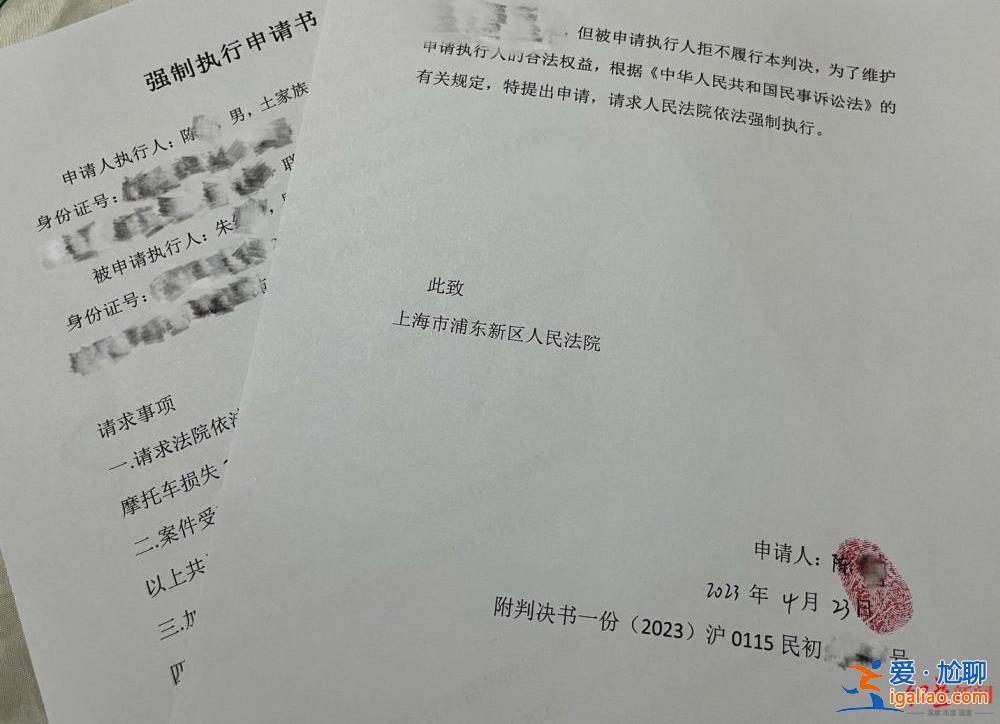 强制执行申请书
申请人执行人：陈 男，土家族
身份证号：
，联
被申请执行人：朱
身份证号：
请求事项
一.请求法院依法
摩托车损失
二.案件受
以上共
三.加
四
，但被申请执行人拒不履行本判决，为了维护
申请执行人的合法权益，根据《中华人民共和国民事诉讼法》的
有关规定，特提出申请，请求人民法院依法强制执行。
此致
上海市浦东新区人民法院
申请人：陈
2023 年 4 月 23 日
附判决书一份（2023）沪 0115 民初 号
爱·尬聊
igaliao.com